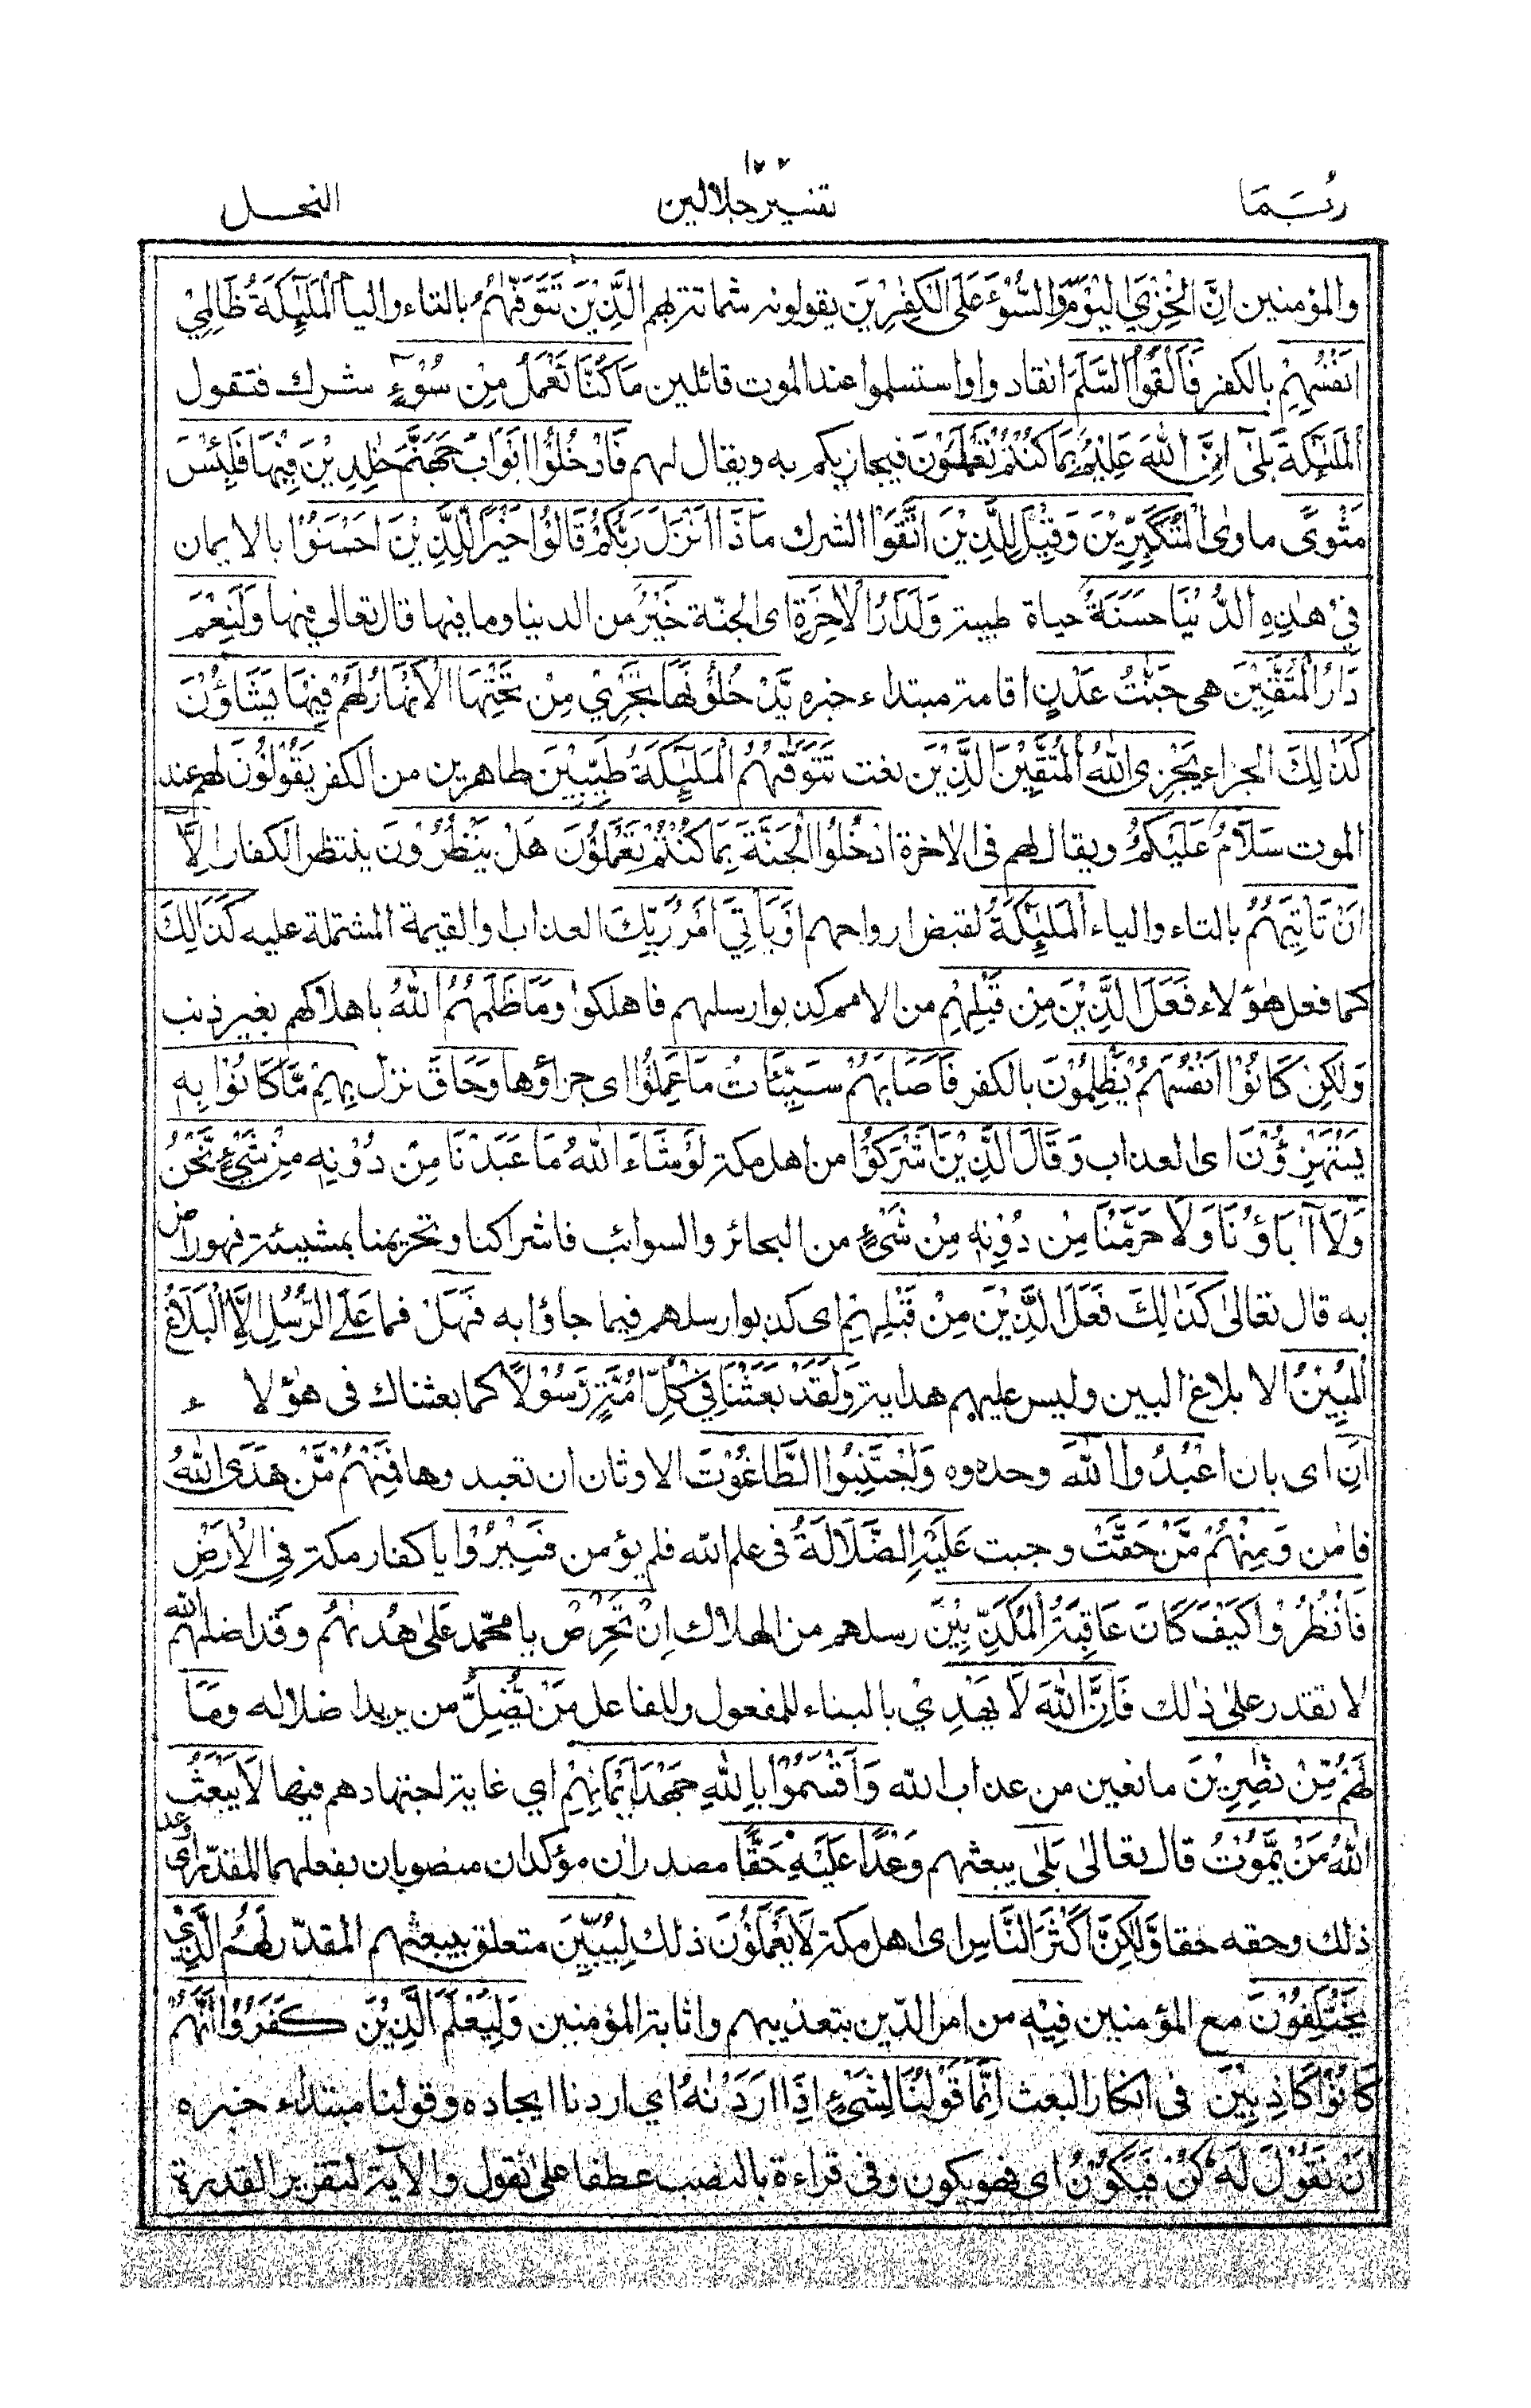 ربما تفسير جلالين النحل
والمؤمنين اِنَّ الْخِزْيَ الْيَوْمَ وَالسُّوْٓءَ عَلَى الْكٰفِرِيْنَ يقولونه شماتة بهم الَّذِيْنَ تَتَوَفّٰهُمُ بالتاء والياء الْمَلٰٓئِكَةُ ظَالِمِيْٓ
اَنْفُسِهِمْ بالكفر فَاَلْقَوُا السَّلَمَ انقادوا واستسلموا عند الموت قائلين مَا كُنَّا نَعْمَلُ مِنْ سُوْٓءٍ شرك فتقول
الْمَلٰٓئِكَةُ بَلٰٓى اِنَّ اللّٰهَ عَلِيْمٌ بِمَا كُنْتُمْ تَعْمَلُوْنَ فيجازيكم به ويقال لهم فَادْخُلُوْٓا اَبْوَابَ جَهَنَّمَ خٰلِدِيْنَ فِيْهَا فَلَبِئْسَ
مَثْوَى ماوى الْمُتَكَبِّرِيْنَ وَقِيْلَ لِلَّذِيْنَ اتَّقَوْا الشرك مَاذَا اَنْزَلَ رَبُّكُمْ قَالُوْا خَيْرًا لِلَّذِيْنَ اَحْسَنُوْا بالايمان
فِيْ هٰذِهِ الدُّنْيَا حَسَنَةٌ حياة طيبة وَلَدَارُ الْاٰخِرَةِ اى الجنة خَيْرٌ من الدنيا وما فيها قال تعالى فيها وَلَنِعْمَ
دَارُ الْمُتَّقِيْنَ هى جَنّٰتُ عَدْنٍ اقامة مبتداء خبره يَّدْخُلُوْنَهَا تَجْرِيْ مِنْ تَحْتِهَا الْاَنْهَارُ لَهُمْ فِيْهَا مَا يَشَآؤُنَ
كَذٰلِكَ الجزاء يَجْزِى اللّٰهُ الْمُتَّقِيْنَ الَّذِيْنَ نعت تَتَوَفّٰهُمُ الْمَلٰٓئِكَةُ طَيِّبِيْنَ طاهرين من الكفر يَقُوْلُوْنَ لهم عند
الموت سَلَامٌ عَلَيْكُمُ ويقال لهم فى الاخرة ادْخُلُوا الْجَنَّةَ بِمَا كُنْتُمْ تَعْمَلُوْنَ هَلْ يَنْظُرُوْنَ ينتظر الكفار اِلَّآ
اَنْ تَاْتِيَهُمُ بالتاء والياء الْمَلٰٓئِكَةُ لقبض ارواحهم اَوْ يَاْتِيَ اَمْرُ رَبِّكَ العذاب او القيمة المشتملة عليه كَذٰلِكَ
كما فعل هؤلاء فَعَلَ الَّذِيْنَ مِنْ قَبْلِهِمْ من الامم كذبوا رسلهم فاهلكوا وَمَا ظَلَمَهُمُ اللّٰهُ باهلاكهم بغير ذنب
وَلٰكِنْ كَانُوْٓا اَنْفُسَهُمْ يَظْلِمُوْنَ بالكفر فَاَصَابَهُمْ سَيِّئَاتُ مَا عَمِلُوْا اى جزاؤها وَحَاقَ نزل بِهِمْ مَّا كَانُوْا بِهٖ
يَسْتَهْزِؤُنَ اى العذاب وَقَالَ الَّذِيْنَ اَشْرَكُوْا من اهل مكة لَوْ شَآءَ اللّٰهُ مَا عَبَدْنَا مِنْ دُوْنِهٖ مِنْ شَيْءٍ نَّحْنُ
وَلَآ اٰبَآؤُنَا وَلَا حَرَّمْنَا مِنْ دُوْنِهٖ مِنْ شَيْءٍ من البحائر والسوائب فاشراكنا وتحريمنا بمشيئته فهو راض
به قال تعالى كَذٰلِكَ فَعَلَ الَّذِيْنَ مِنْ قَبْلِهِمْ اى كذبوا رسلهم فيما جاؤا به فَهَلْ فما عَلَى الرُّسُلِ اِلَّا الْبَلَاغُ
الْمُبِيْنُ الا بلاغ البين وليس عليهم هداية وَلَقَدْ بَعَثْنَا فِيْ كُلِّ اُمَّةٍ رَّسُوْلًا كما بعثناك فى هؤلاء
اَنِ اى بان اعْبُدُوا اللّٰهَ وحدوه وَاجْتَنِبُوا الطَّاغُوْتَ الاوثان ان تعبدوها فَمِنْهُمْ مَّنْ هَدَى اللّٰهُ
فامن وَمِنْهُمْ مَّنْ حَقَّتْ وجبت عَلَيْهِ الضَّلَالَةُ فى علم الله فلم يؤمن فَسِيْرُوْا يا كفار مكة فِى الْاَرْضِ
فَانْظُرُوْا كَيْفَ كَانَ عَاقِبَةُ الْمُكَذِّبِيْنَ رسلهم من الهلاك اِنْ تَحْرِصْ يا محمد عَلٰى هُدٰىهُمْ وقد اضلهم الله
لا تقدر على ذلك فَاِنَّ اللّٰهَ لَا يَهْدِيْ بالبناء للمفعول وللفاعل مَنْ يُّضِلُّ من يريد اضلاله وَمَا
لَهُمْ مِّنْ نّٰصِرِيْنَ مانعين من عذاب الله وَاَقْسَمُوْا بِاللّٰهِ جَهْدَ اَيْمَانِهِمْ اي غاية اجتهادهم فيها لَا يَبْعَثُ
اللّٰهُ مَنْ يَّمُوْتُ قال تعالى بَلٰى يبعثهم وَعْدًا عَلَيْهِ حَقًّا مصدران مؤكدان منصوبان بفعلهما المقدر اى وعد
ذلك وحقه حقا وَّلٰكِنَّ اَكْثَرَ النَّاسِ اى اهل مكة لَا يَعْلَمُوْنَ ذلك لِيُبَيِّنَ متعلق بيبعثهم المقدر لَهُمُ الَّذِيْ
يَخْتَلِفُوْنَ مع المؤمنين فِيْهِ من امر الدين بتعذيبهم واثابة المؤمنين وَلِيَعْلَمَ الَّذِيْنَ كَفَرُوْٓا اَنَّهُمْ
كَانُوْا كَاذِبِيْنَ فى انكار البعث اِنَّمَا قَوْلُنَا لِشَيْءٍ اِذَا اَرَدْنٰهُ اي اردنا ايجاده وقولنا مبتداء خبره
اَنْ نَّقُوْلَ لَهٗ كُنْ فَيَكُوْنُ اى فهو يكون وفى قراءة بالنصب عطفا على نقول والآية لتقرير القدرة